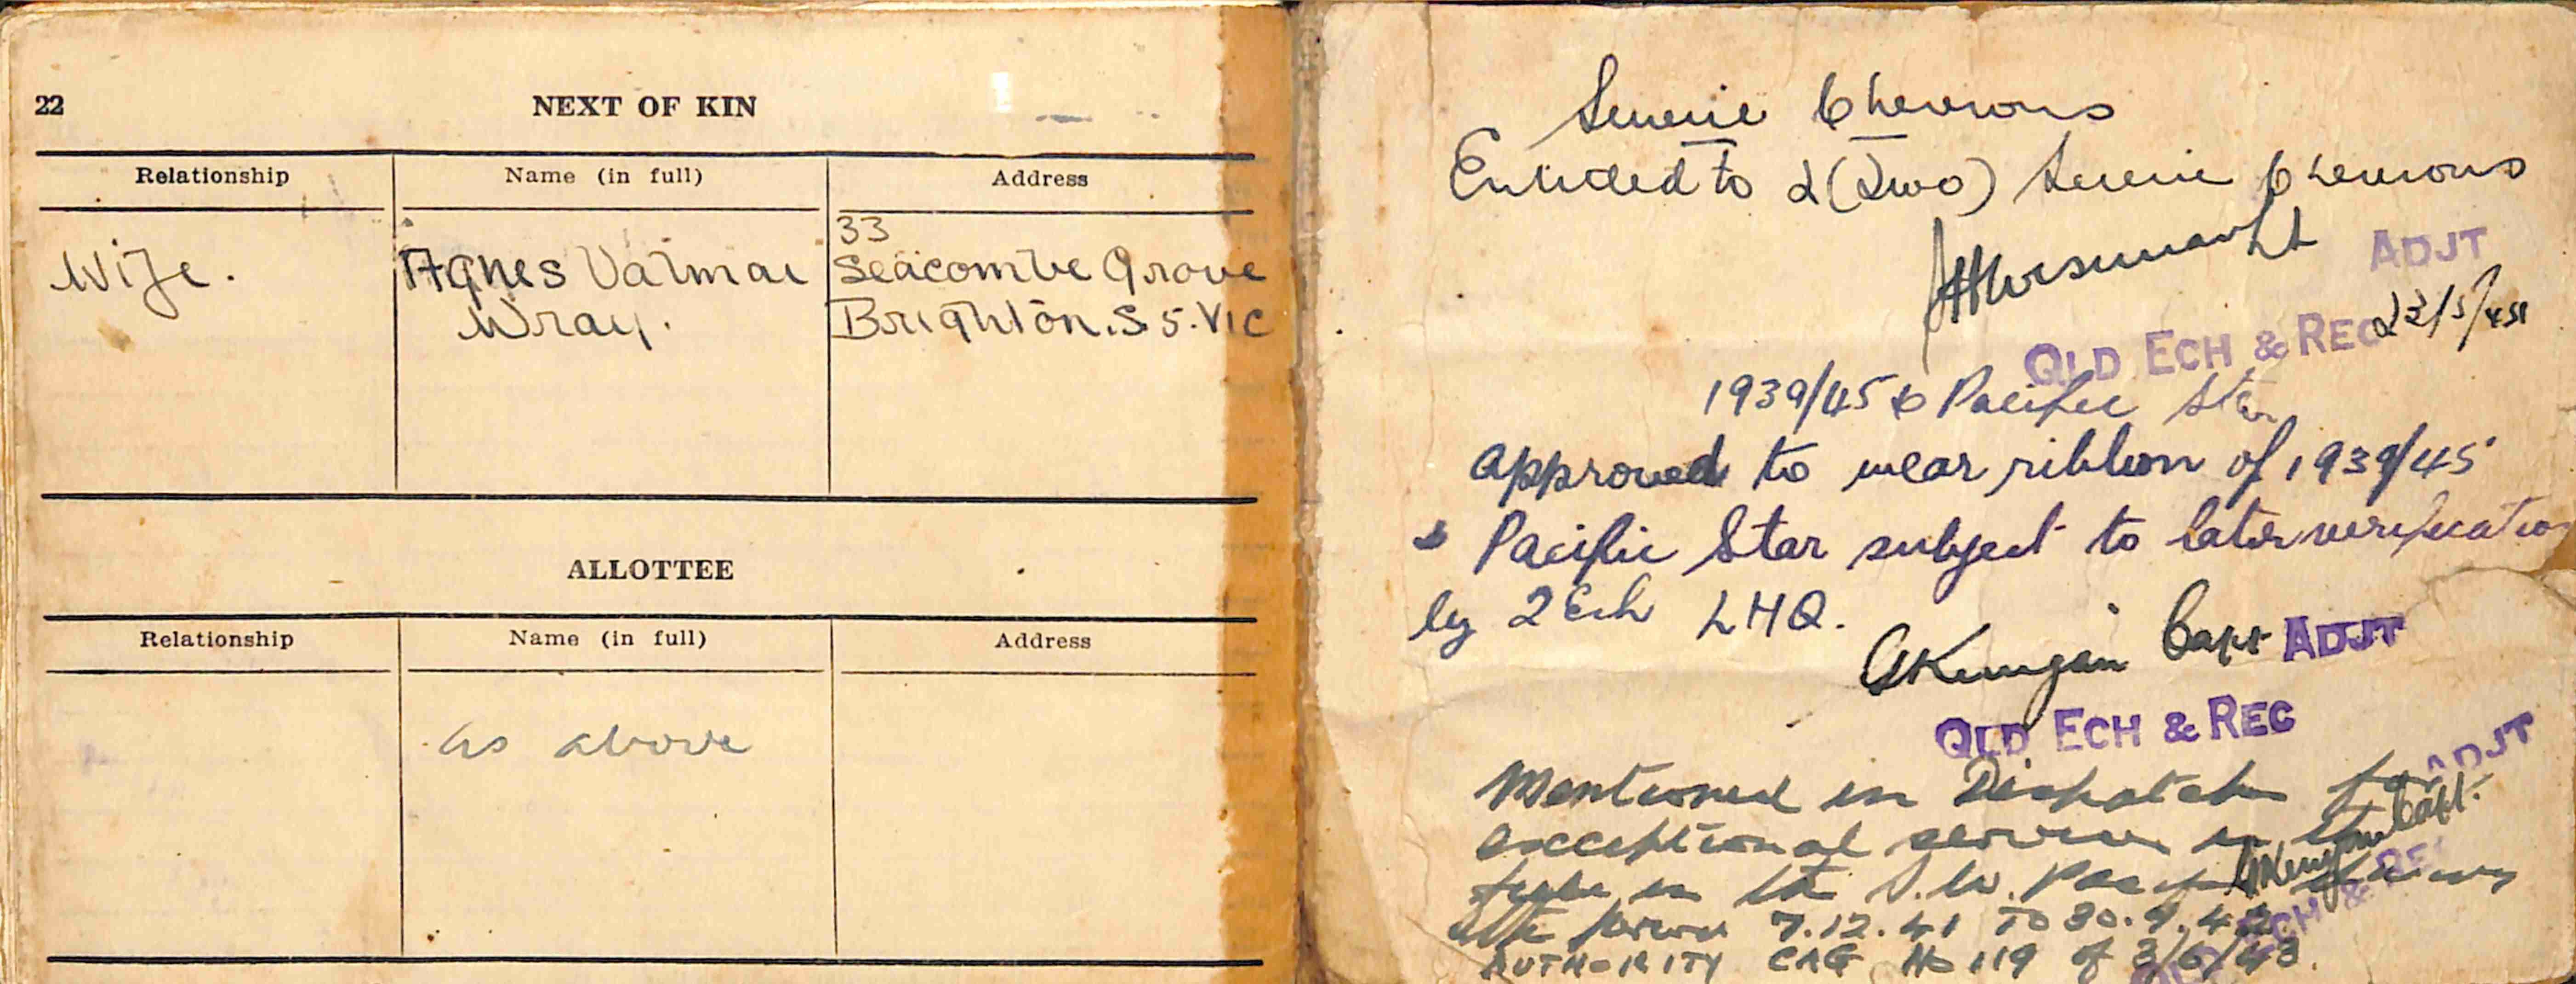 22
NEXT OF KIN
Relationship Name (in full) Address
33
Wife. Agnes Valmai Seacombe Grove
Wray. Brighton.S 5.Vic
ALLOTTEE
Relationship Name (in full) Address
as above
Service Chevrons
Entitled to 2 (Two) Service Chevrons
Lt ADJT
QLD ECH & REC 22/5/45
1939/45 & Pacific Star
approved to wear ribbon of 1939/45
& Pacific Star subject to later verification
by 2 Ech LHQ.
Capt ADJT
QLD ECH & REC
ADJT
Mentioned in Dispatches for
Capt.
exceptional service in the
field in the S.W. Pacific
period 7.12.41 TO 30.9.42
ECH & REC
AUTHORITY CAG No 119 of 3/6/43.